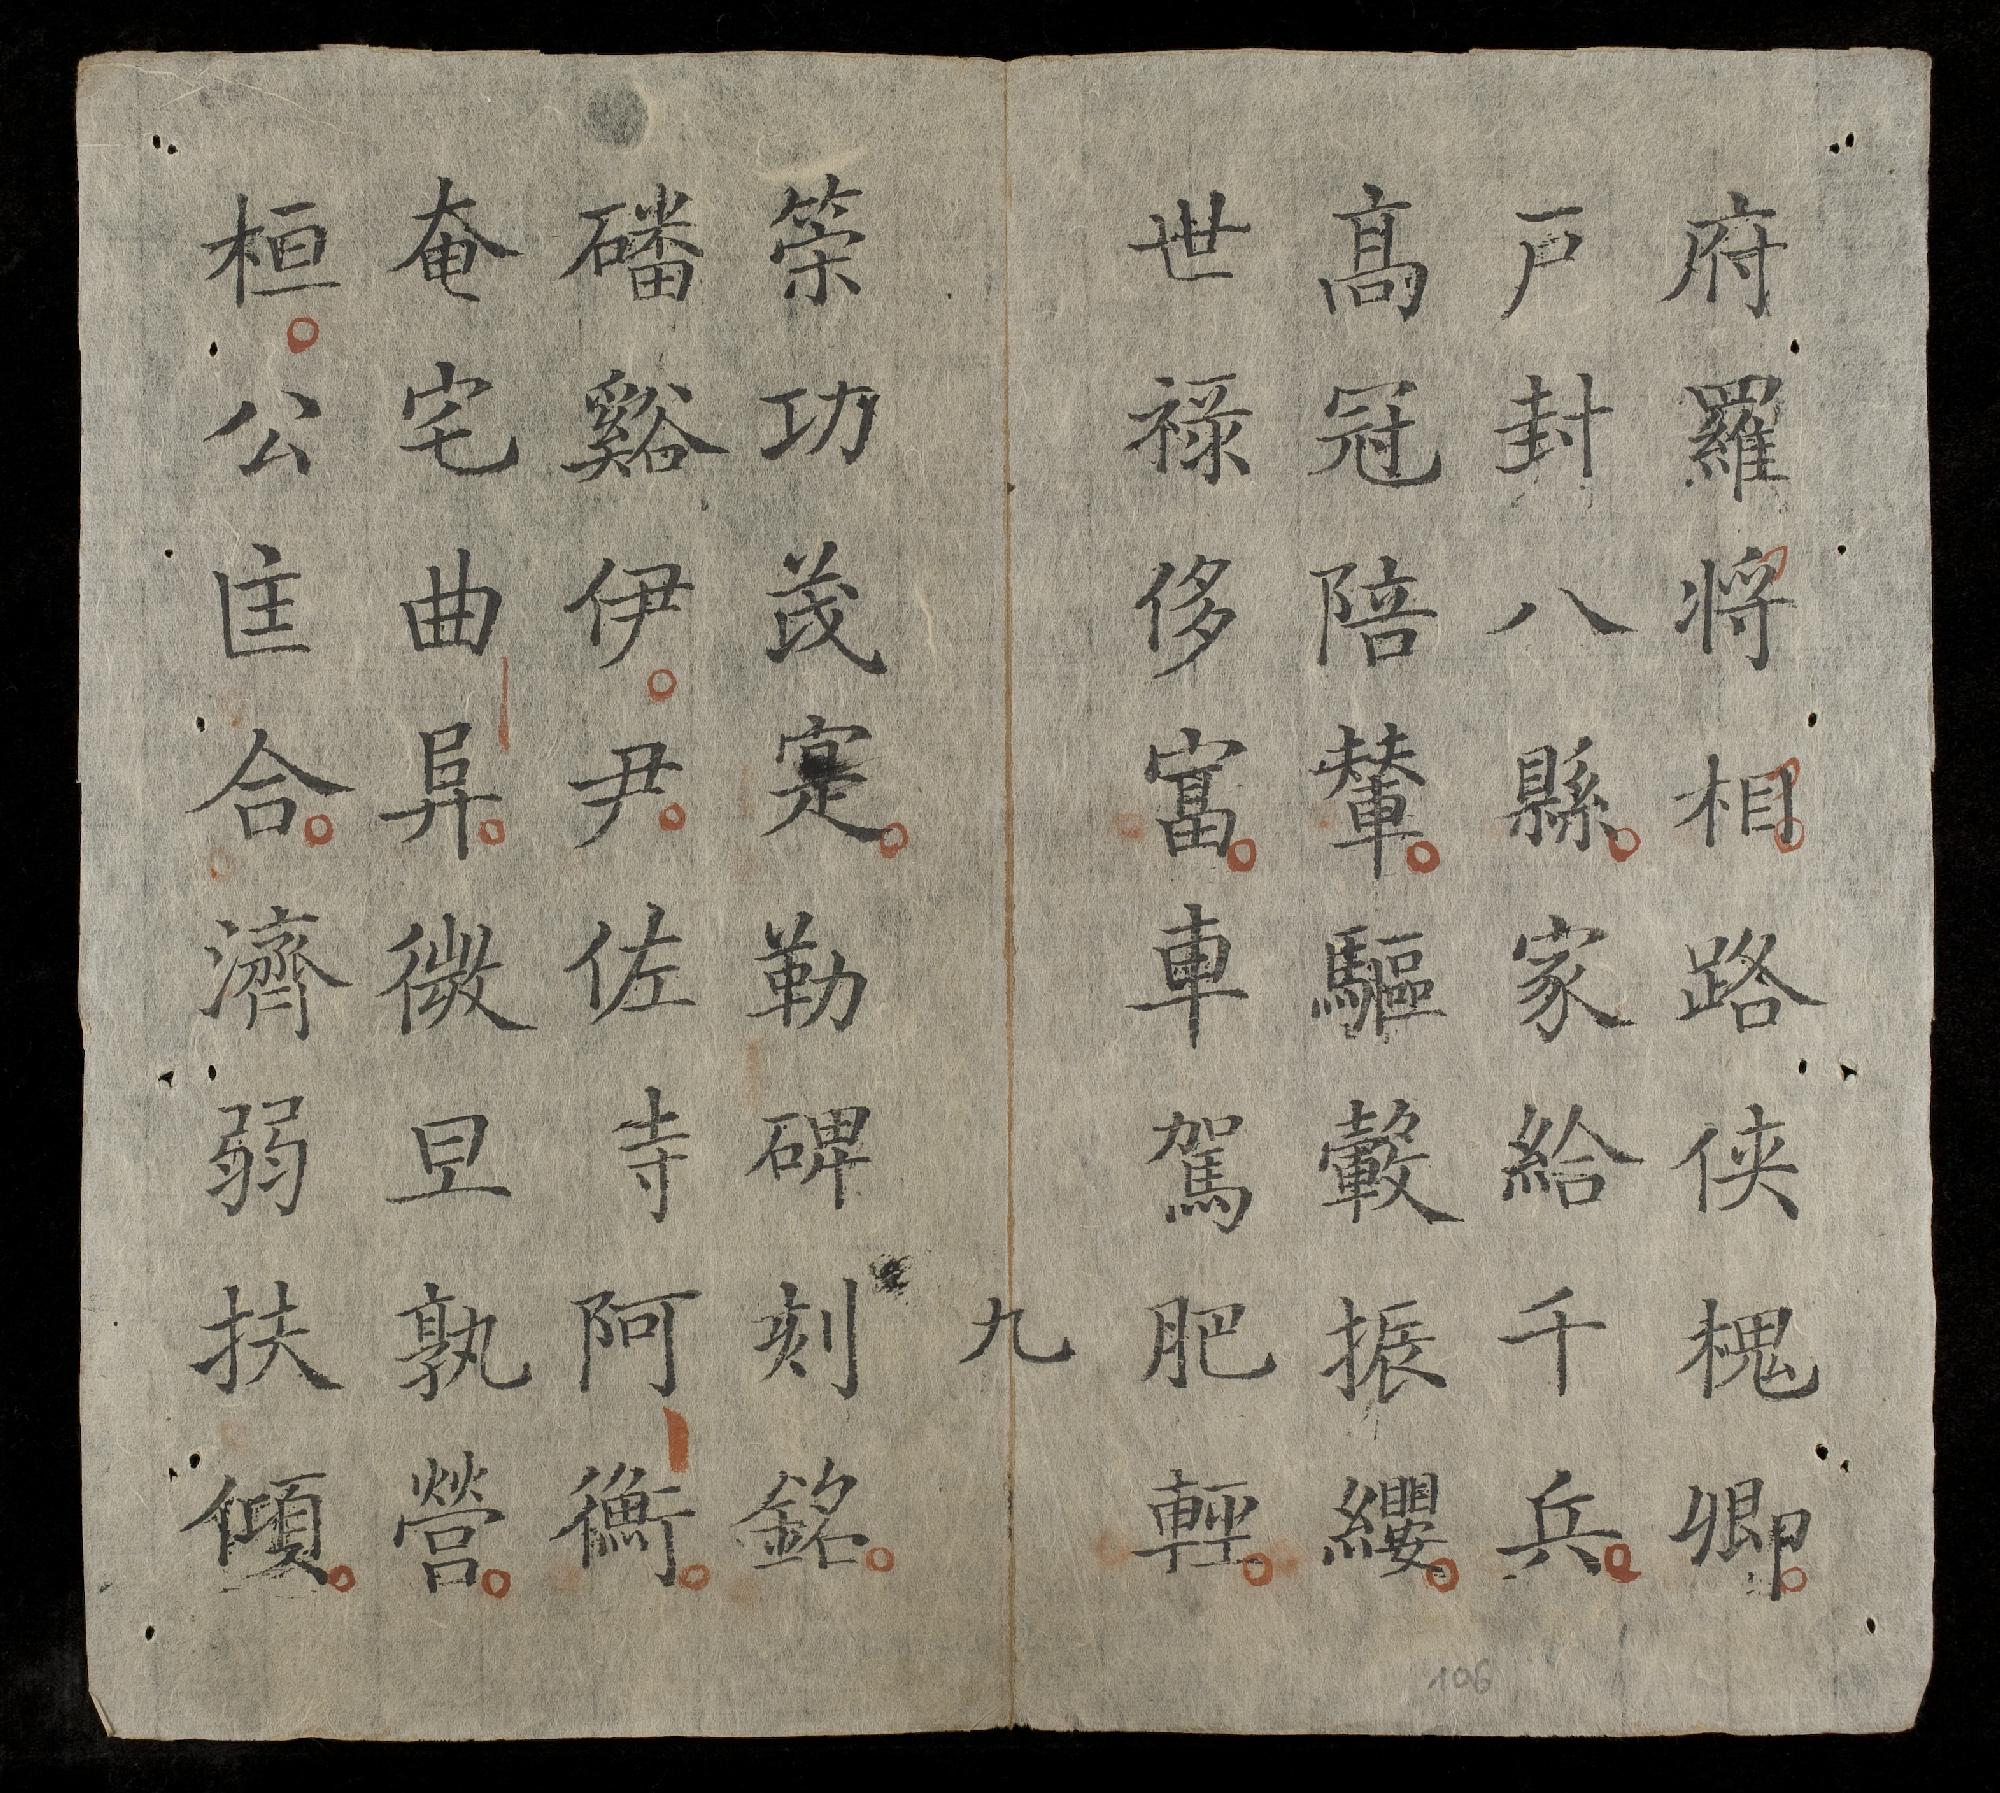 府羅将相路俠槐卿
戸封八縣家給千兵
髙冠陪輦驅轂振纓
世祿侈富車駕肥輕
九
策功茂寔勒碑刻銘
磻谿伊尹佐寺阿衡
奄宅曲阜微旦孰營
桓公匡合濟弱扶傾
106